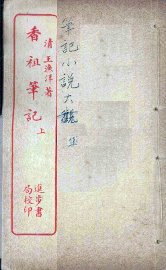 筆記小說大觀 集
清 王漁洋著
香祖筆記 上
進步書
局校印